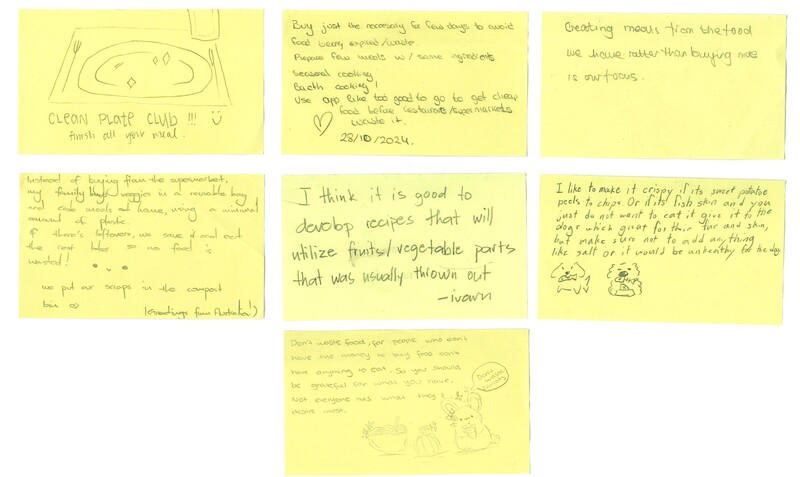 CLEAN PLATE CLUB !!!
finish all your meal.
Buy just the necessary for few days to avoid
food being expired/waste
Prepare few meals w/ same ingredients
Seasonal cooking
Bacth cooking!
Use app like too good to go to get cheap
food before restaurants/supermarkets
waste it.
28/10/2024.
Creating meals from the food
we have rather than buying more
is our focus.
Instead of buying from the supermarket,
my family buys veggies in a reusable bag
and cook meals at home, using a minimal
amount of plastic.
If there's leftovers, we save it and eat
the rest later = no food is
wasted!
we put our scraps in the compost
bin
(Greetings from Australia!)
I think it is good to
develop recipes that will
utilize fruits/vegetable parts
that was usually thrown out
I like to make it crispy if its sweet potatoe
peels to chips. Or if its fish skin and you
just do not want to eat it give it to the
dogs which great for their fur and skin,
but make sure not to add anything
like salt or it would be unhealthy for the dog
Don't waste food, for people who don't
have the money to buy food don't
have anything to eat. So you should
be grateful for what you have.
Not everyone has what they
desire most.
Don't waste